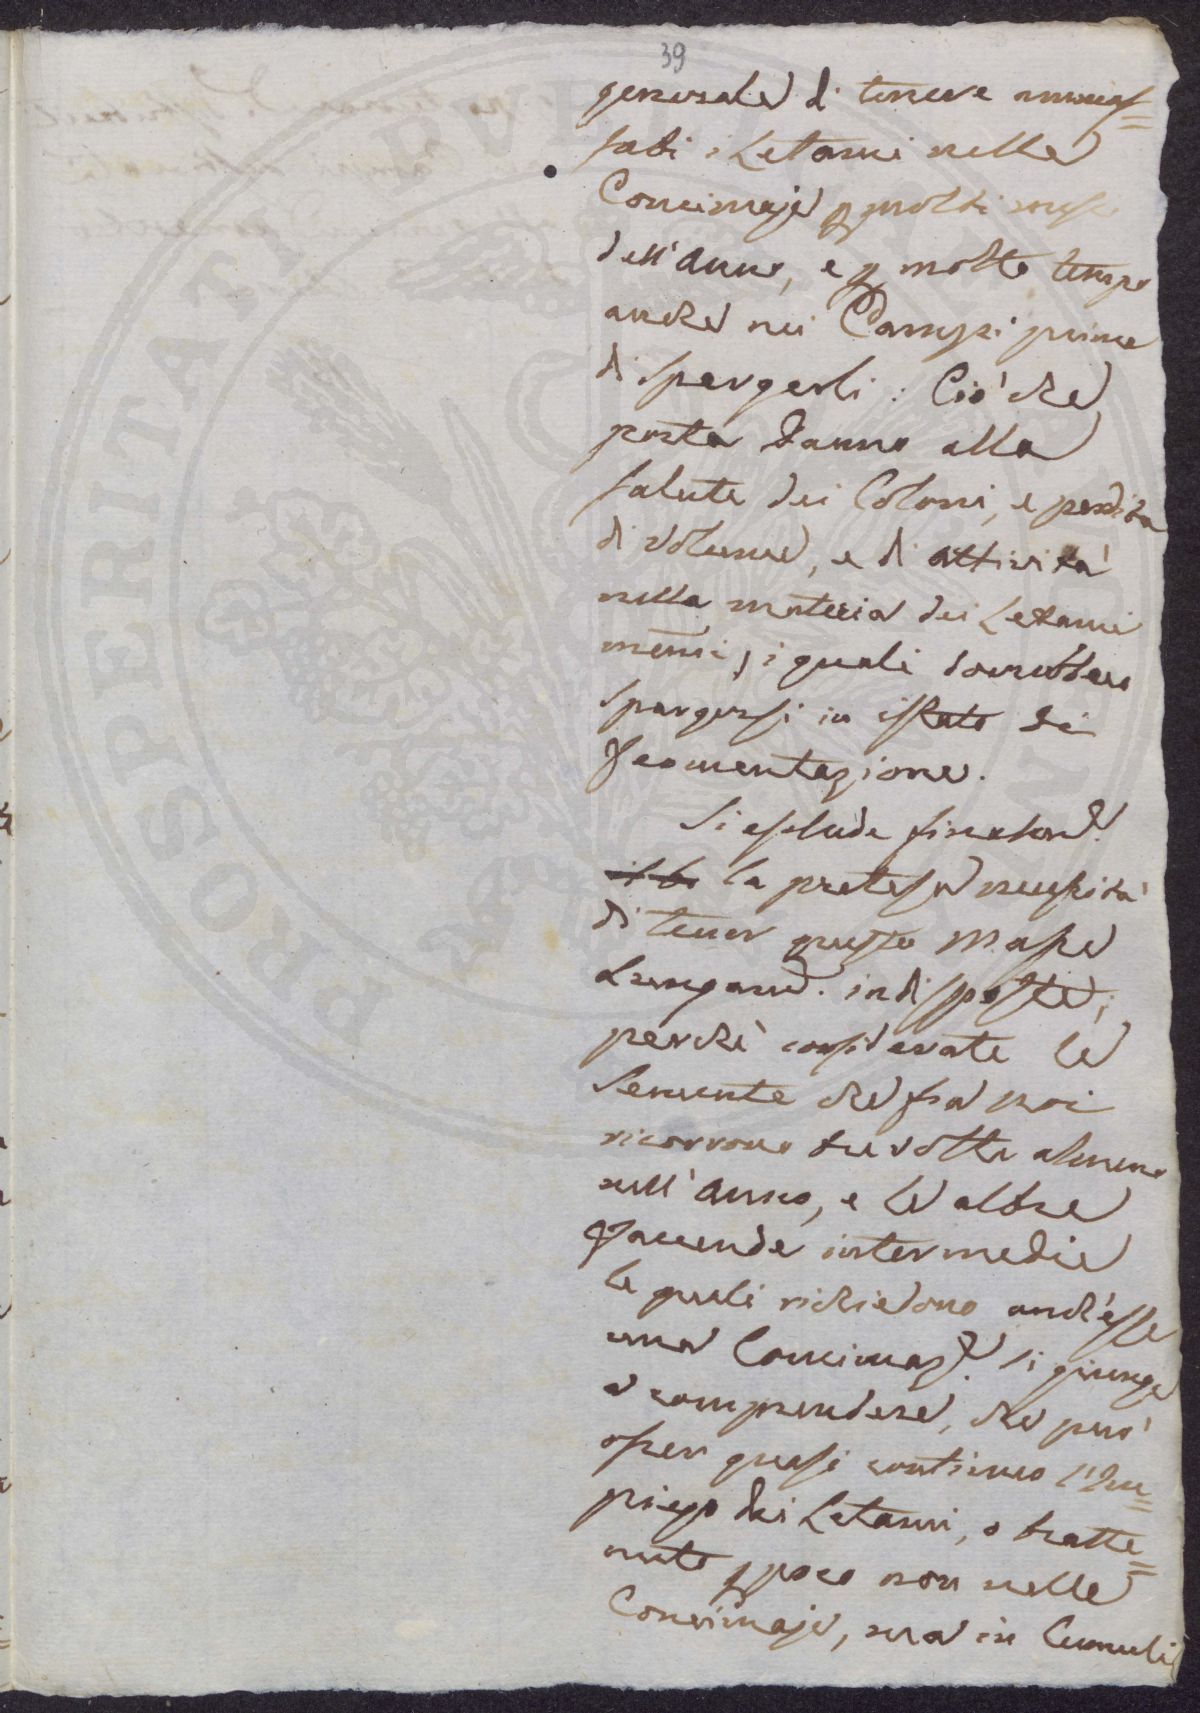 39
generale di tenere ammas=
sati i Letami nelle
Concimaje p molti mesi
dell'Anno, e p molto tempo
anche nei Campi prima
di spargerli: Ciò che
porta danno alla
salute dei Coloni, e perdita
di volume, e di attività
nella materia dei Letami
mēmi, i quali dovrebbero
spargersi in istato di
Fermentazione.
Si esclude finalmte.
il la pretesa necessità
di tener queste Masse
Lungamte. indisposte;
perchè considerate le
Semente che fra noi
ricorrono tre volte almeno
nell'Anno, e le altre
Faccende intermedie
le quali richiedono anch'esse
una Concimaze. si giunge
a comprendere, che può
esser quasi continuo l'Im=
piego dei Letami, o tratte=
nuto p poco non nelle
Concimaje, ma in Cumuli
PROSPERITATI PVBLICAE